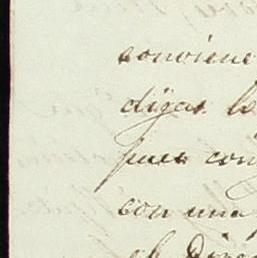 conviene
digas lo
pues con
con una
el Direc